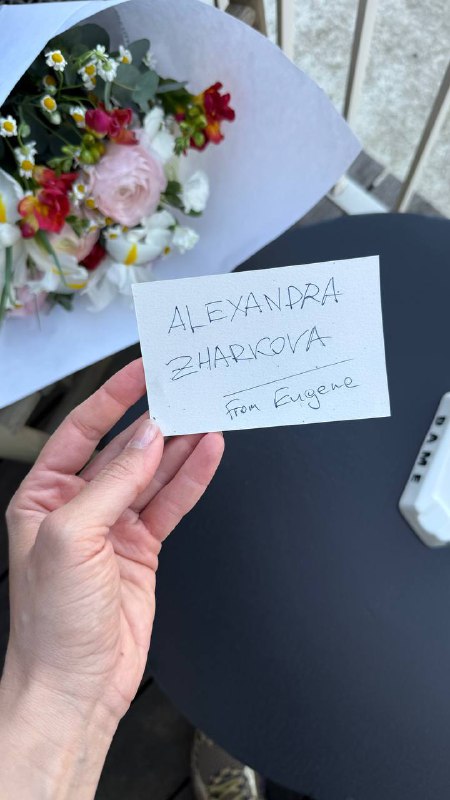 ALEXANDRA
ZHARKOVA
From Eugene
DAME